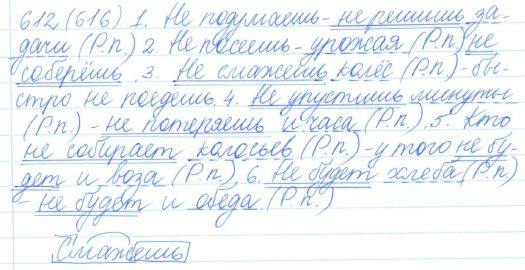 612 (616) 1. Не подумаешь - не решишь за-
дачи (Р.п.) 2. Не посеешь - урожая (Р.п.) не
соберёшь. 3. Не смажешь колёс (Р.п.) - бы-
стро не поедешь. 4. Не упустишь минуты
(Р.п.) - не потеряешь и часа (Р.п.). 5. Кто
не собирает колосьев (Р.п.) - у того не бу-
дет и воза (Р.п.). 6. Не будет хлеба (Р.п.)
не будет и обеда. (Р.п.)
Смажешь